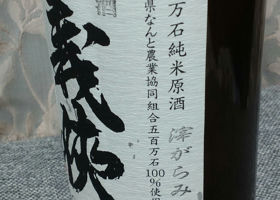 滓がらみ
万石純米原酒
県なんと農業協同組合五百万石
100%使用
義侠